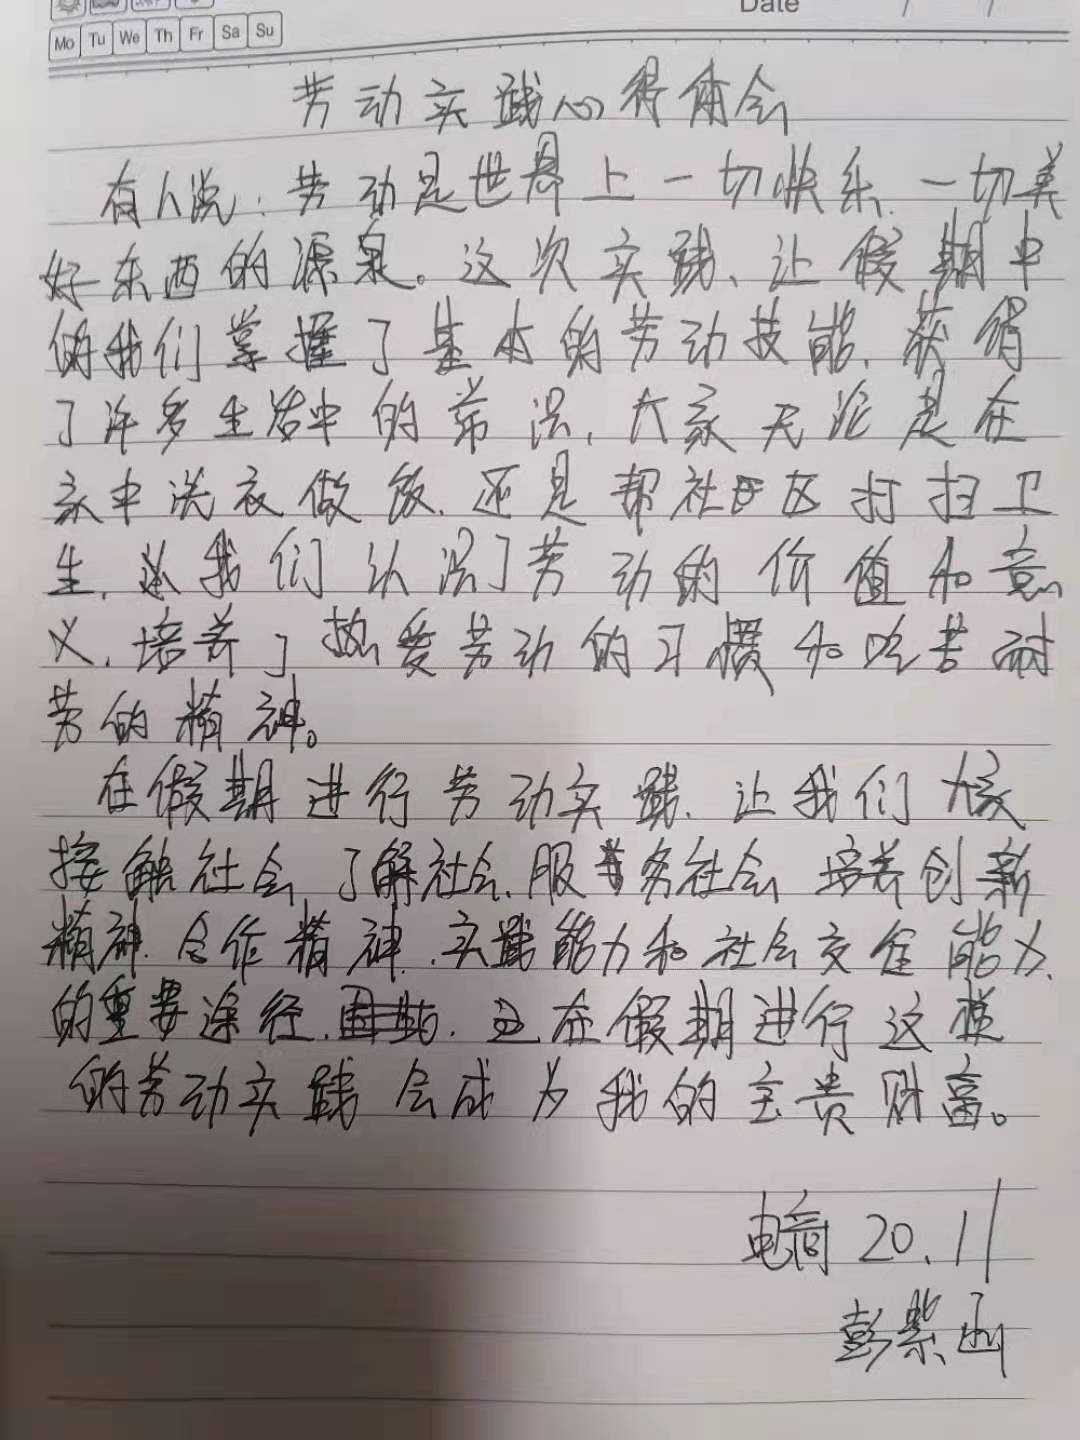 Date
Mo Tu We Th Fr Sa Su
劳动实践心得体会
有人说：劳动是世界上一切快乐、一切美
好东西的源泉。这次实践、让假期中
的我们掌握了基本的劳动技能、获得
了许多生活中的常识、大家无论是在
家中洗衣做饭、还是帮社区打扫卫
生、让我们认识了劳动的价值和意
义、培养了热爱劳动的习惯和吃苦耐
劳的精神。
在假期进行劳动实践、让我们大家
接触社会、了解社会、服务社会 培养创新
精神、合作精神、实践能力和社会交往能力、
的重要途径、在假期进行这样
的劳动实践会成为我的宝贵财富。
电商 20.11
彭紫函